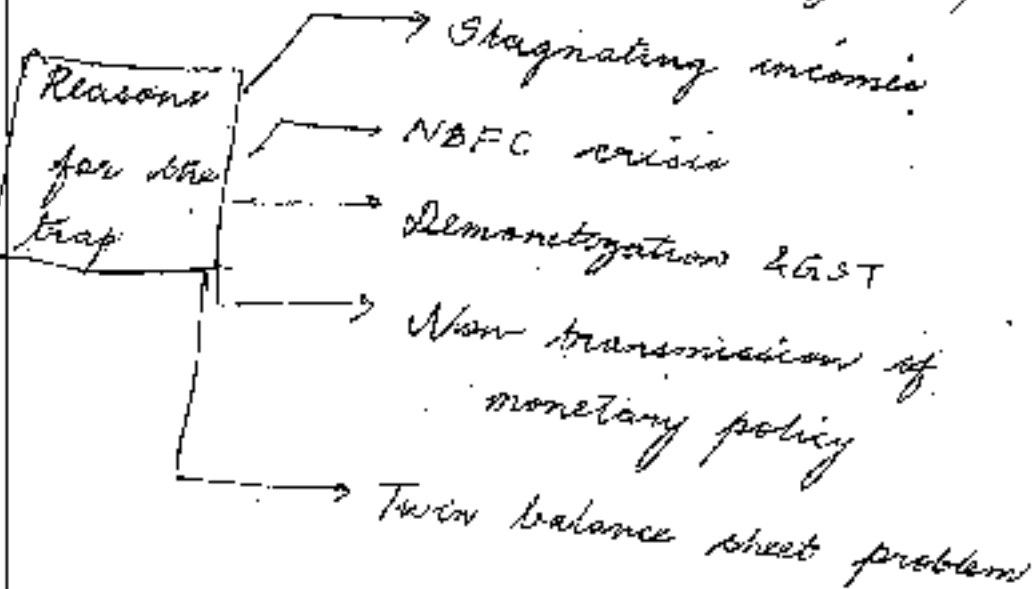 Reasons
for the
trap
Stagnating incomes
NBFC crisis
Demonetization & GST
Non transmission of
monetary policy
Twin balance sheet problem